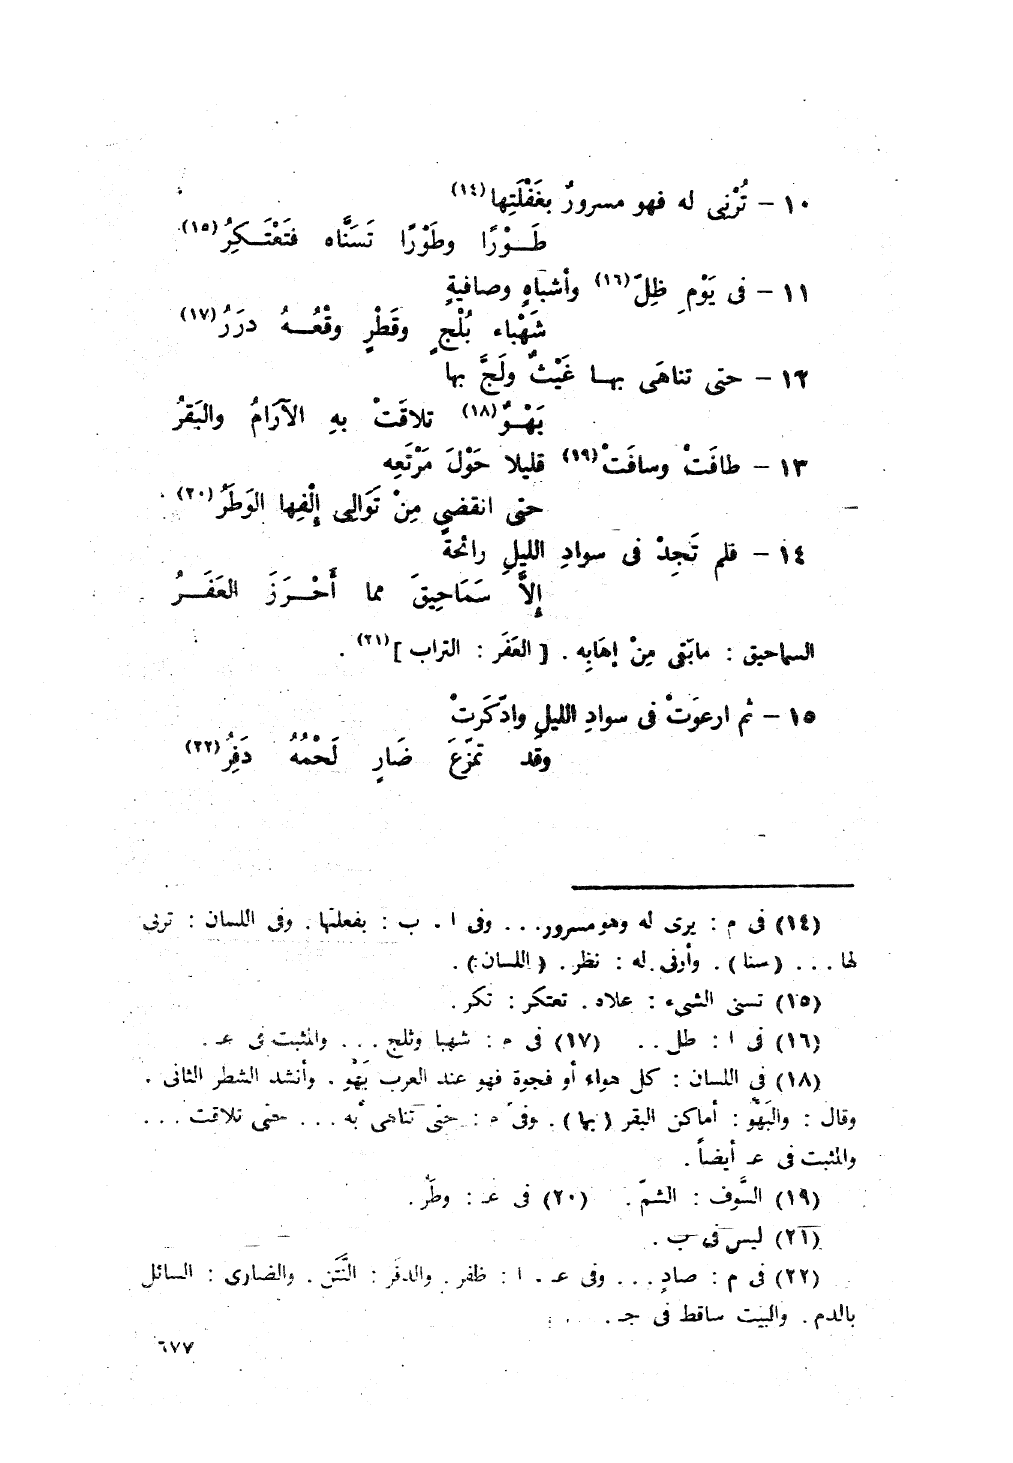 ١٠ – تُرْنِى له فهو مسرورٌ بغَفْلَتِها(١٤)
طَــوْرًا وطَوْرًا تَسَنَّاه فتَعْتَـكِرُ(١٥)
١١ – فى يَوْمِ ظِلّ(١٦) وأشباهٍ وصافيةٍ
شَهْباء بُلْجٍ وقَطْرٍ وقْعُــهُ دِرَرُ(١٧)
١٢ – حتى تناهَى بهــا غَيْثٌ ولَجَّ بها
بَهْــوٌ(١٨) تلاقَتْ بهِ الآرَامُ والبَقرُ
١٣ – طافَتْ وسافَتْ(١٩) قليلا حَوْلَ مَرْتَعِه
حتى انقضى مِنْ تَوَالِى إلْفِها الوَطَرُ(٢٠) .
١٤ – فلم تَجِدْ فى سوادِ الليلِ رائحةً
إلاَّ سَمَاحِيقَ مما أَحْــرَزَ العَفَــرُ
السماحيق : مابَقى مِنْ إهَابِه . [ العَفَر : التراب ](٢١) .
١٥ – ثم ارعوَتْ فى سوادِ الليلِ وادّكَرتْ
وقد تمزّعَ ضَارٍ لَحْمُهُ دَفِرُ(٢٢)
(١٤) فى م : يرى له وهو مسرور... وفى ا . ب : بفعلتها . وفى اللسان : ترنى
لها ... (سنا) . وأرنى له : نظر . ( اللسان ) .
(١٥) تسنى الشىء : علاه . تعتكر : تكر .
(١٦) فى ا : طل .. (١٧) فى م : شهبا وثلج ... والمثبت فى عـ .
(١٨) فى اللسان : كل هواء أو فجوة فهو عند العرب بَهْو . وأنشد الشطر الثانى .
وقال : والبَهْو : أماكن البقر ( بها ) . وفى م : حتى تناهى به ... حتى تلاقت ...
والمثبت فى عـ أيضاً .
(١٩) السَّوف : الشمّ . (٢٠) فى عـ : وطَر .
(٢١) ليس فى ب .
(٢٢) فى م : صادٍ ... وفى عـ . ا : ظفر . والدفَر : النَّتَن . والضارى : السائل
بالدم . والبيت ساقط فى جـ .
٦٧٧